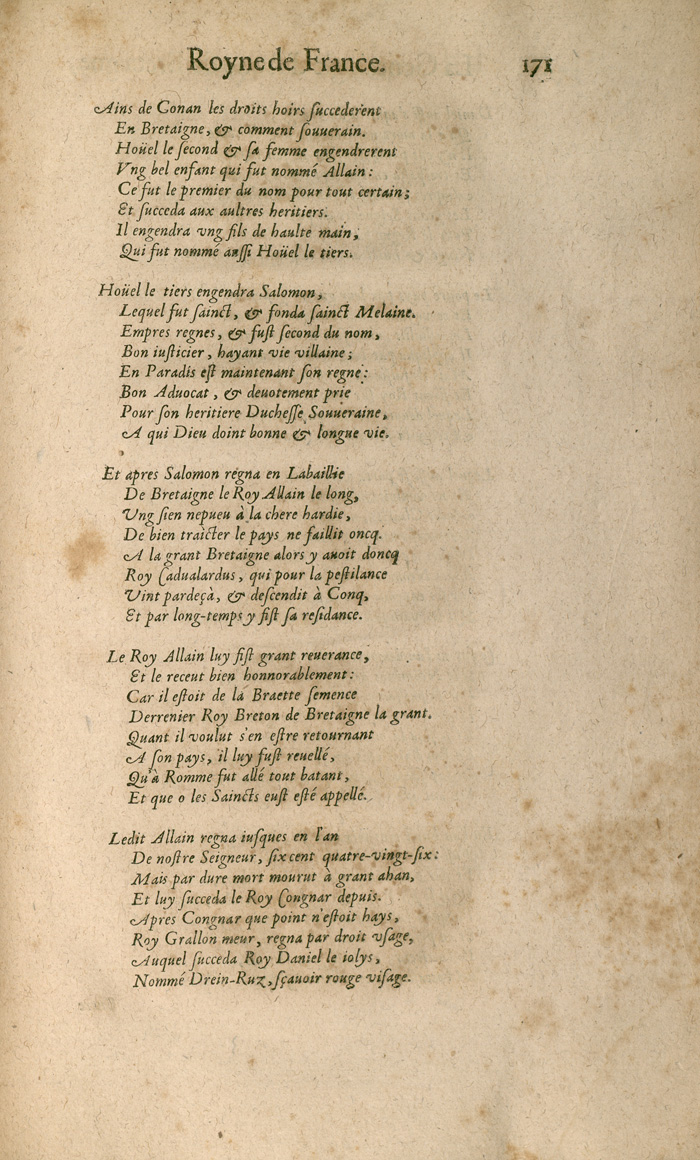 Royne de France. 171
Ains de Conan les droits hoirs ſuccederent
En Bretaigne, & comment ſouuerain.
Hoüel le ſecond & ſa femme engendrerent
Vng bel enfant qui fut nommé Allain:
Ce fut le premier du nom pour tout certain;
Et ſucceda aux aultres heritiers.
Il engendra vng fils de haulte main,
Qui fut nommé auſſi Hoüel le tiers.
Hoüel le tiers engendra Salomon,
Lequel fut ſainct, & fonda ſainct Melaine.
Empres regnes, & fuſt ſecond du nom,
Bon iuſticier, hayant vie villaine;
En Paradis eſt maintenant ſon regne:
Bon Aduocat, & deuotement prie
Pour ſon heritiere Ducheſſe Souueraine,
A qui Dieu doint bonne & longue vie.
Et apres Salomon regna en Labaillie
De Bretaigne le Roy Allain le long,
Vng ſien nepueu à la chere hardie,
De bien traicter le pays ne faillit oncq.
A la grant Bretaigne alors y auoit doncq
Roy Cadualardus, qui pour la peſtilance
Vint pardeçà, & deſcendit à Conq,
Et par long-temps y fiſt ſa reſidance.
Le Roy Allain luy fiſt grant reuerance,
Et le receut bien honnorablement:
Car il eſtoit de la Braette ſemence
Derrenier Roy Breton de Bretaigne la grant.
Quant il voulut s'en eſtre retournant
A ſon pays, il luy fuſt reuellé,
Qu'à Romme fut allé tout batant,
Et que o les Saincts euſt eſté appellé.
Ledit Allain regna iuſques en l'an
De noſtre Seigneur, ſix cent quatre-vingt-ſix:
Mais par dure mort mourut à grant ahan,
Et luy ſucceda le Roy Congnar depuis.
Apres Congnar que point n'eſtoit hays,
Roy Grallon meur, regna par droit vſage,
Auquel ſucceda Roy Daniel le iolys,
Nommé Drein-Ruz, ſçauoir rouge viſage.